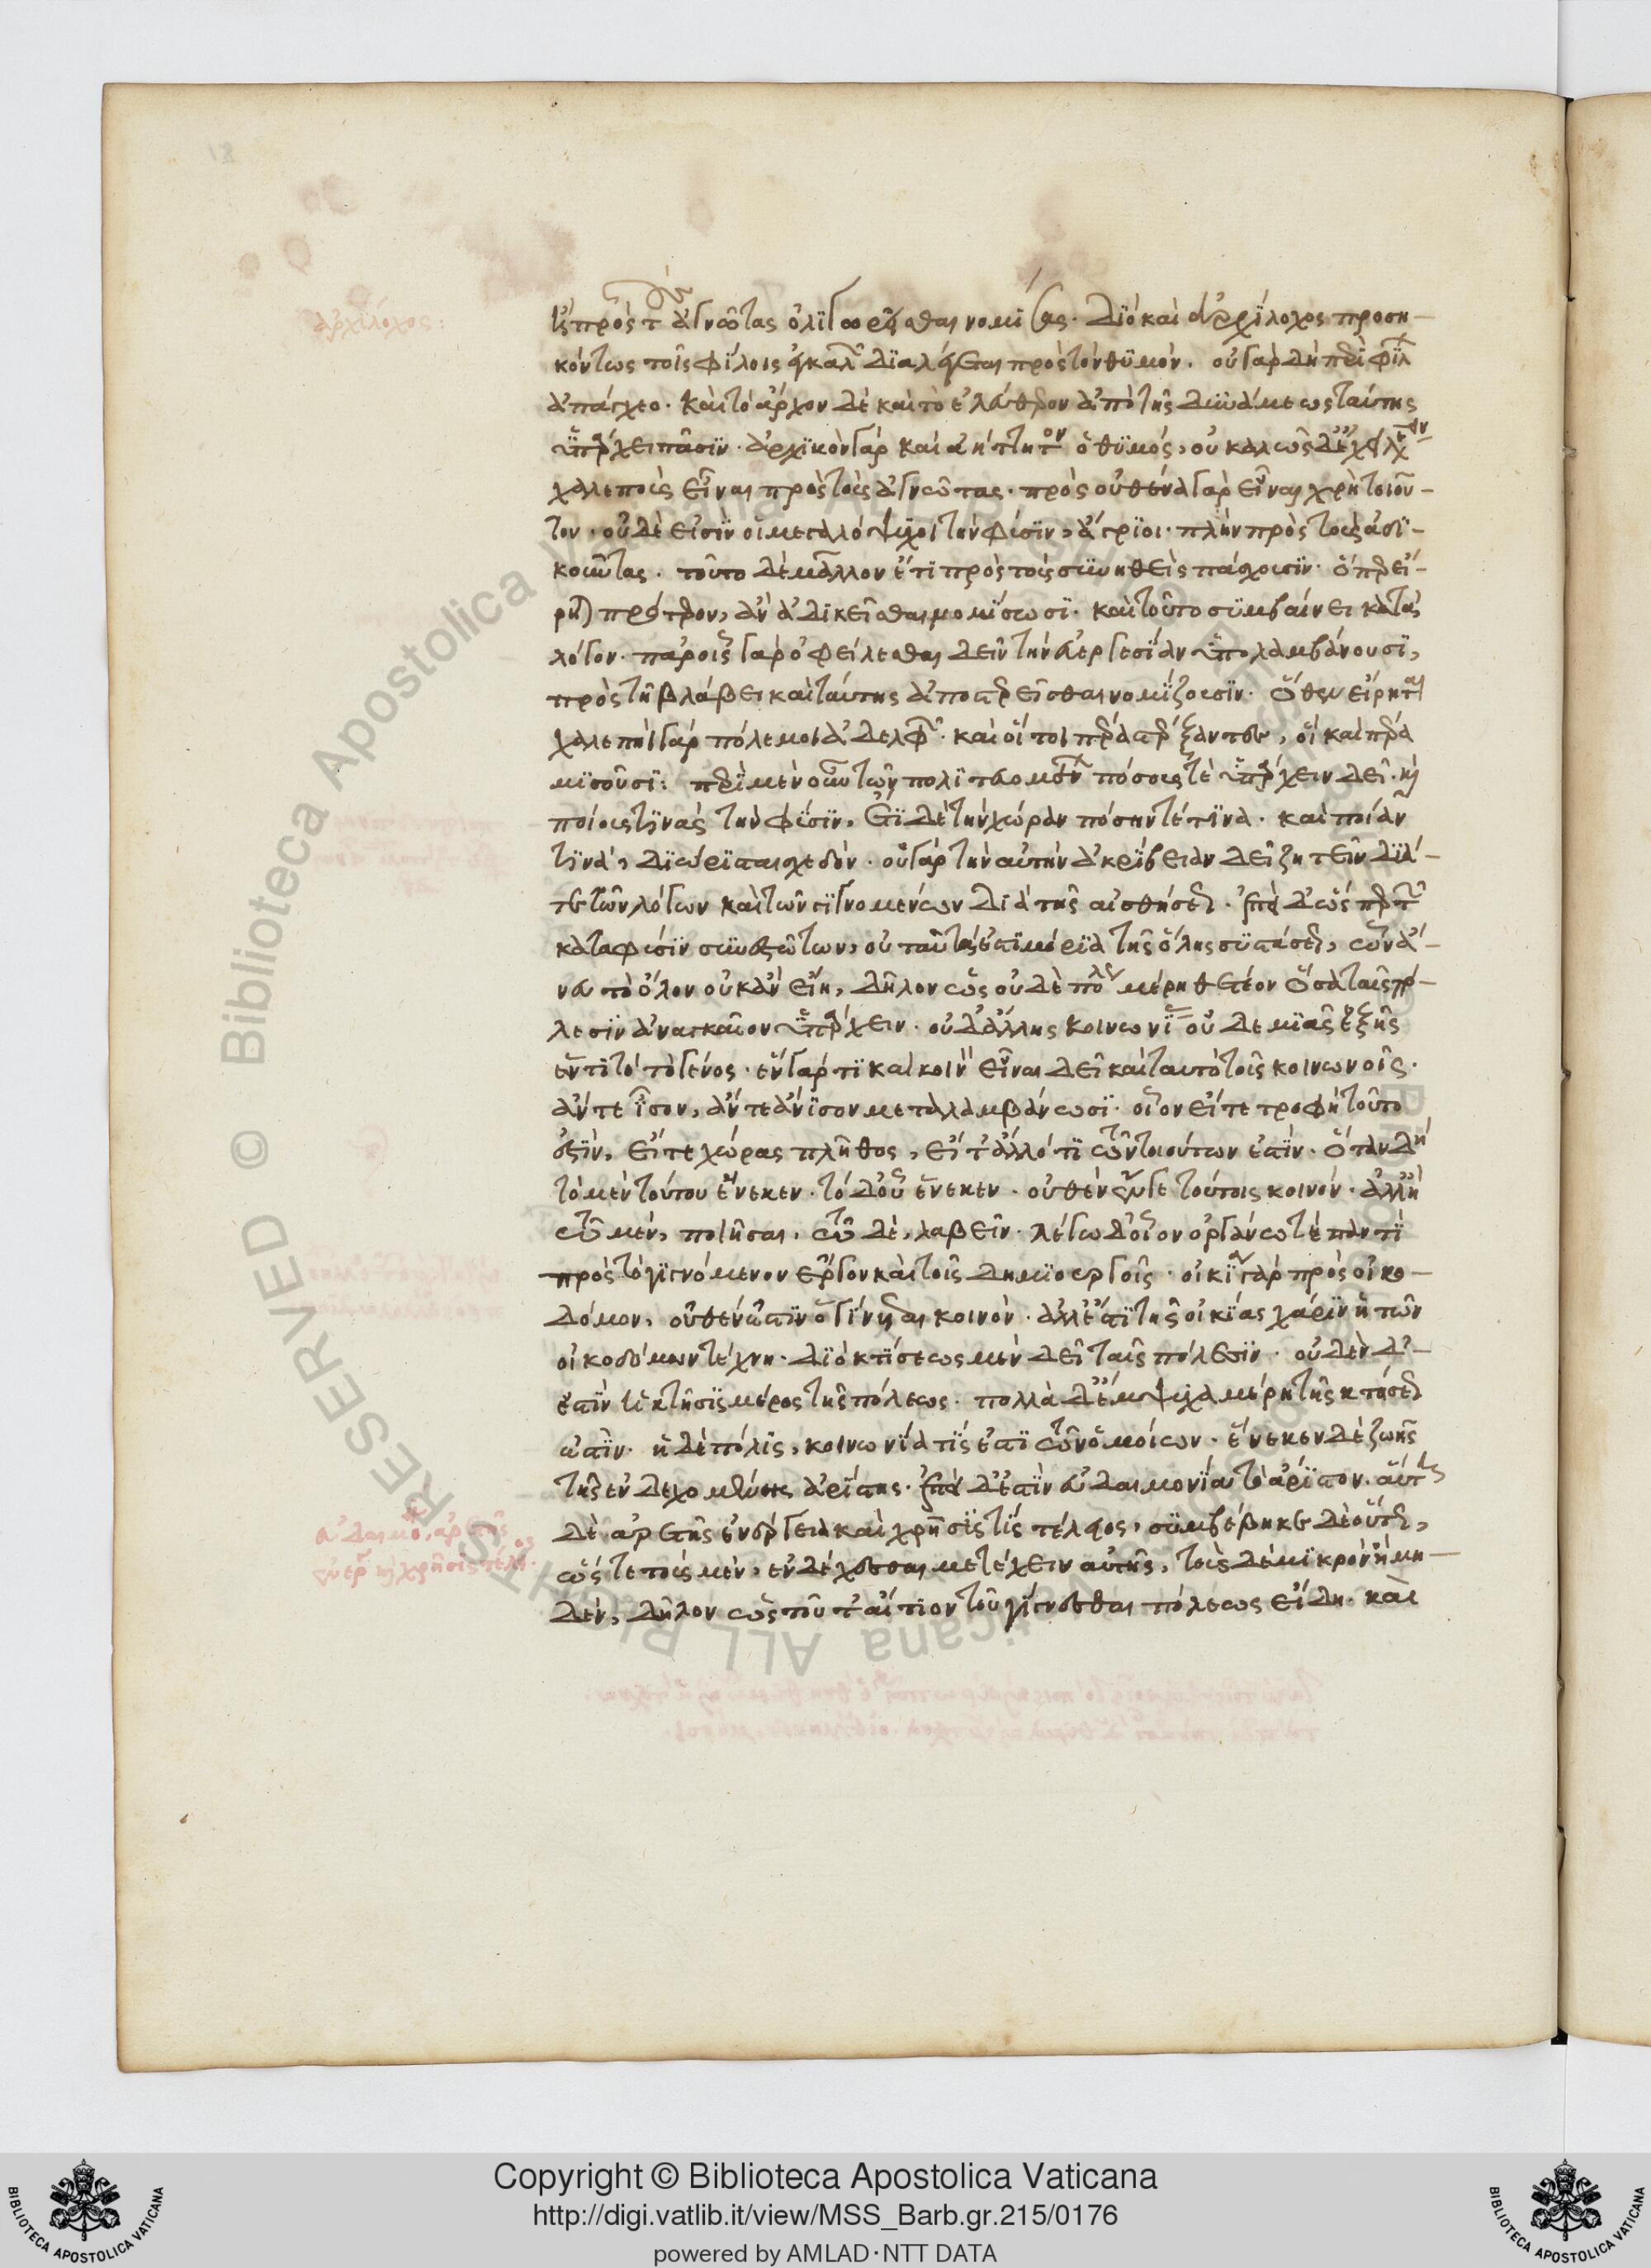 ἀρχίλοχος:
ἢ πρὸς τοὺς ἀγνῶτας ὀλιγωρεῖσθαι νομίσας. διὸ καὶ ἀρχίλοχος προση-
κόντως τοῖς φίλοις ἐγκαλῶν διαλέγεται πρὸς τὸν θυμόν. οὐ γὰρ δὴ περὶ φίλων
ἀπάγχεο. καὶ τὸ ἄρχον δὲ καὶ τὸ ἐλεύθερον ἀπὸ τῆς δυνάμεως ταύτης
ὑπάρχει πᾶσιν. ἀρχικὸν γὰρ καὶ ἀήττητον ὁ θυμός, οὐ καλῶς δ' ἔχει λέγειν
χαλεποὺς εἶναι πρὸς τοὺς ἀγνῶτας. πρὸς οὐθένα γὰρ εἶναι χρὴ τοιοῦ-
τον. οὐδὲ εἰσὶν οἱ μεγαλόψυχοι τὴν φύσιν, ἄγριοι. πλὴν πρὸς τοὺς ἀδι-
κοῦντας. τοῦτο δὲ μᾶλλον ἔτι πρὸς τοὺς συνήθεις πάσχουσιν. ὅπερ εἴ-
ρηται πρότερον, ἂν ἀδικεῖσθαι νομίσωσι. καὶ τοῦτο συμβαίνει κατὰ
λόγον. παρ' οἷς γὰρ ὀφείλεσθαι δεῖν τὴν εὐεργεσίαν ὑπολαμβάνουσι,
πρὸς τῇ βλάβει καὶ ταύτης ἀποστερεῖσθαι νομίζουσιν. ὅθεν εἴρηται
χαλεποὶ γὰρ πόλεμοι ἀδελφῶν. καὶ οἵ τοι πέρα στέρξαντες, οἳ καὶ πέρα
μισοῦσι: περὶ μὲν οὖν τῶν πολιτευομένων πόσους τὲ ὑπάρχειν δεῖ. καὶ
ποίους τινὰς τὴν φύσιν. ἔτι δὲ τὴν χώραν πόσην τέ τινα. καὶ ποίαν
τινά, διώρισται σχεδόν. οὐ γὰρ τὴν αὐτὴν ἀκρίβειαν δεῖ ζητεῖν διά-
τε τῶν λόγων καὶ τῶν γιγνομένων διὰ τῆς αἰσθήσεως. ἐπεὶ δ' ὥσπερ τῶν
κατὰ φύσιν συνεστώτων, οὐ ταῦτά ἐστι μόρια τῆς ὅλης συστάσεως, ὧν ἄ-
νευ τὸ ὅλον οὐκ ἂν εἴη, δῆλον ὡς οὐδὲ πόλεως μέρη θετέον ὅσα ταῖς πό-
λεσιν ἀναγκαῖον ὑπάρχειν. οὐδ' ἄλλης κοινωνίας οὐδεμιᾶς ἐξ ἧς
ἕν τι τὸ τὸ γένος. ἓν γάρ τι καὶ κοινὸν εἶναι δεῖ καὶ ταυτὸ τοῖς κοινωνοῖς.
ἄν τε ἴσον, ἄν τε ἄνισον μεταλαμβάνωσι. οἷον εἴτε τροφὴ τοῦτο
ἐστίν, εἴτε χώρας πλῆθος, εἴτ' ἄλλό τι τῶν τοιούτων ἐστίν. ὅταν δὴ
τὸ μὲν τούτου ἕνεκεν. τὸ δ' οὗ ἕνεκεν. οὐθὲν ἔν γε τούτοις κοινόν. ἀλλ' ἢ
τῷ μὲν, ποιῆσαι, τῷ δὲ, λαβεῖν. λέγω δ' οἷον ὀργάνω τὲ παντὶ
πρὸς τὸ γιγνόμενον ἔργον καὶ τοῖς δημιουργοῖς. οἰκία γὰρ πρὸς οἰκο-
δόμον, οὐθέν ἐστιν ὃ γίνεται κοινόν. ἀλλ' ἔστι τῆς οἰκίας χάριν ἡ τῶν
οἰκοδόμων τέχνη. διὸ κτίσεως μὲν δεῖ ταῖς πόλεσιν. οὐδὲν δ'
ἐστὶν ἡ κτῆσις μέρος τῆς πόλεως. πολλὰ δ' ἔμψυχα μέρη τῆς κτήσεως
ἐστιν. ἡ δὲ πόλις, κοινωνία τίς ἐστι τῶν ὁμοίων. ἕνεκεν δὲ ζωῆς
τῆς ἐνδεχομένης ἀρίστης. ἐπεὶ δ' ἐστὶν εὐδαιμονία τὸ ἄριστον. αὕτη
δὲ ἀρετῆς ἐνέργεια καὶ χρῆσίς τις τέλειος, συμβέβηκε δὲ οὕτως,
ὥστε τοὺς μὲν, ἐνδέχεσθαι μετέχειν αὐτῆς, τοὺς δὲ μικρὸν ἢ μη-
δέν, δῆλον ὡς τοῦτ' αἴτιον τοῦ γίγνεσθαι πόλεως εἴδη. καὶ
εὐδαιμονία, ἀρετῆς
ἐνέργεια καὶ χρῆσις τέλειος.